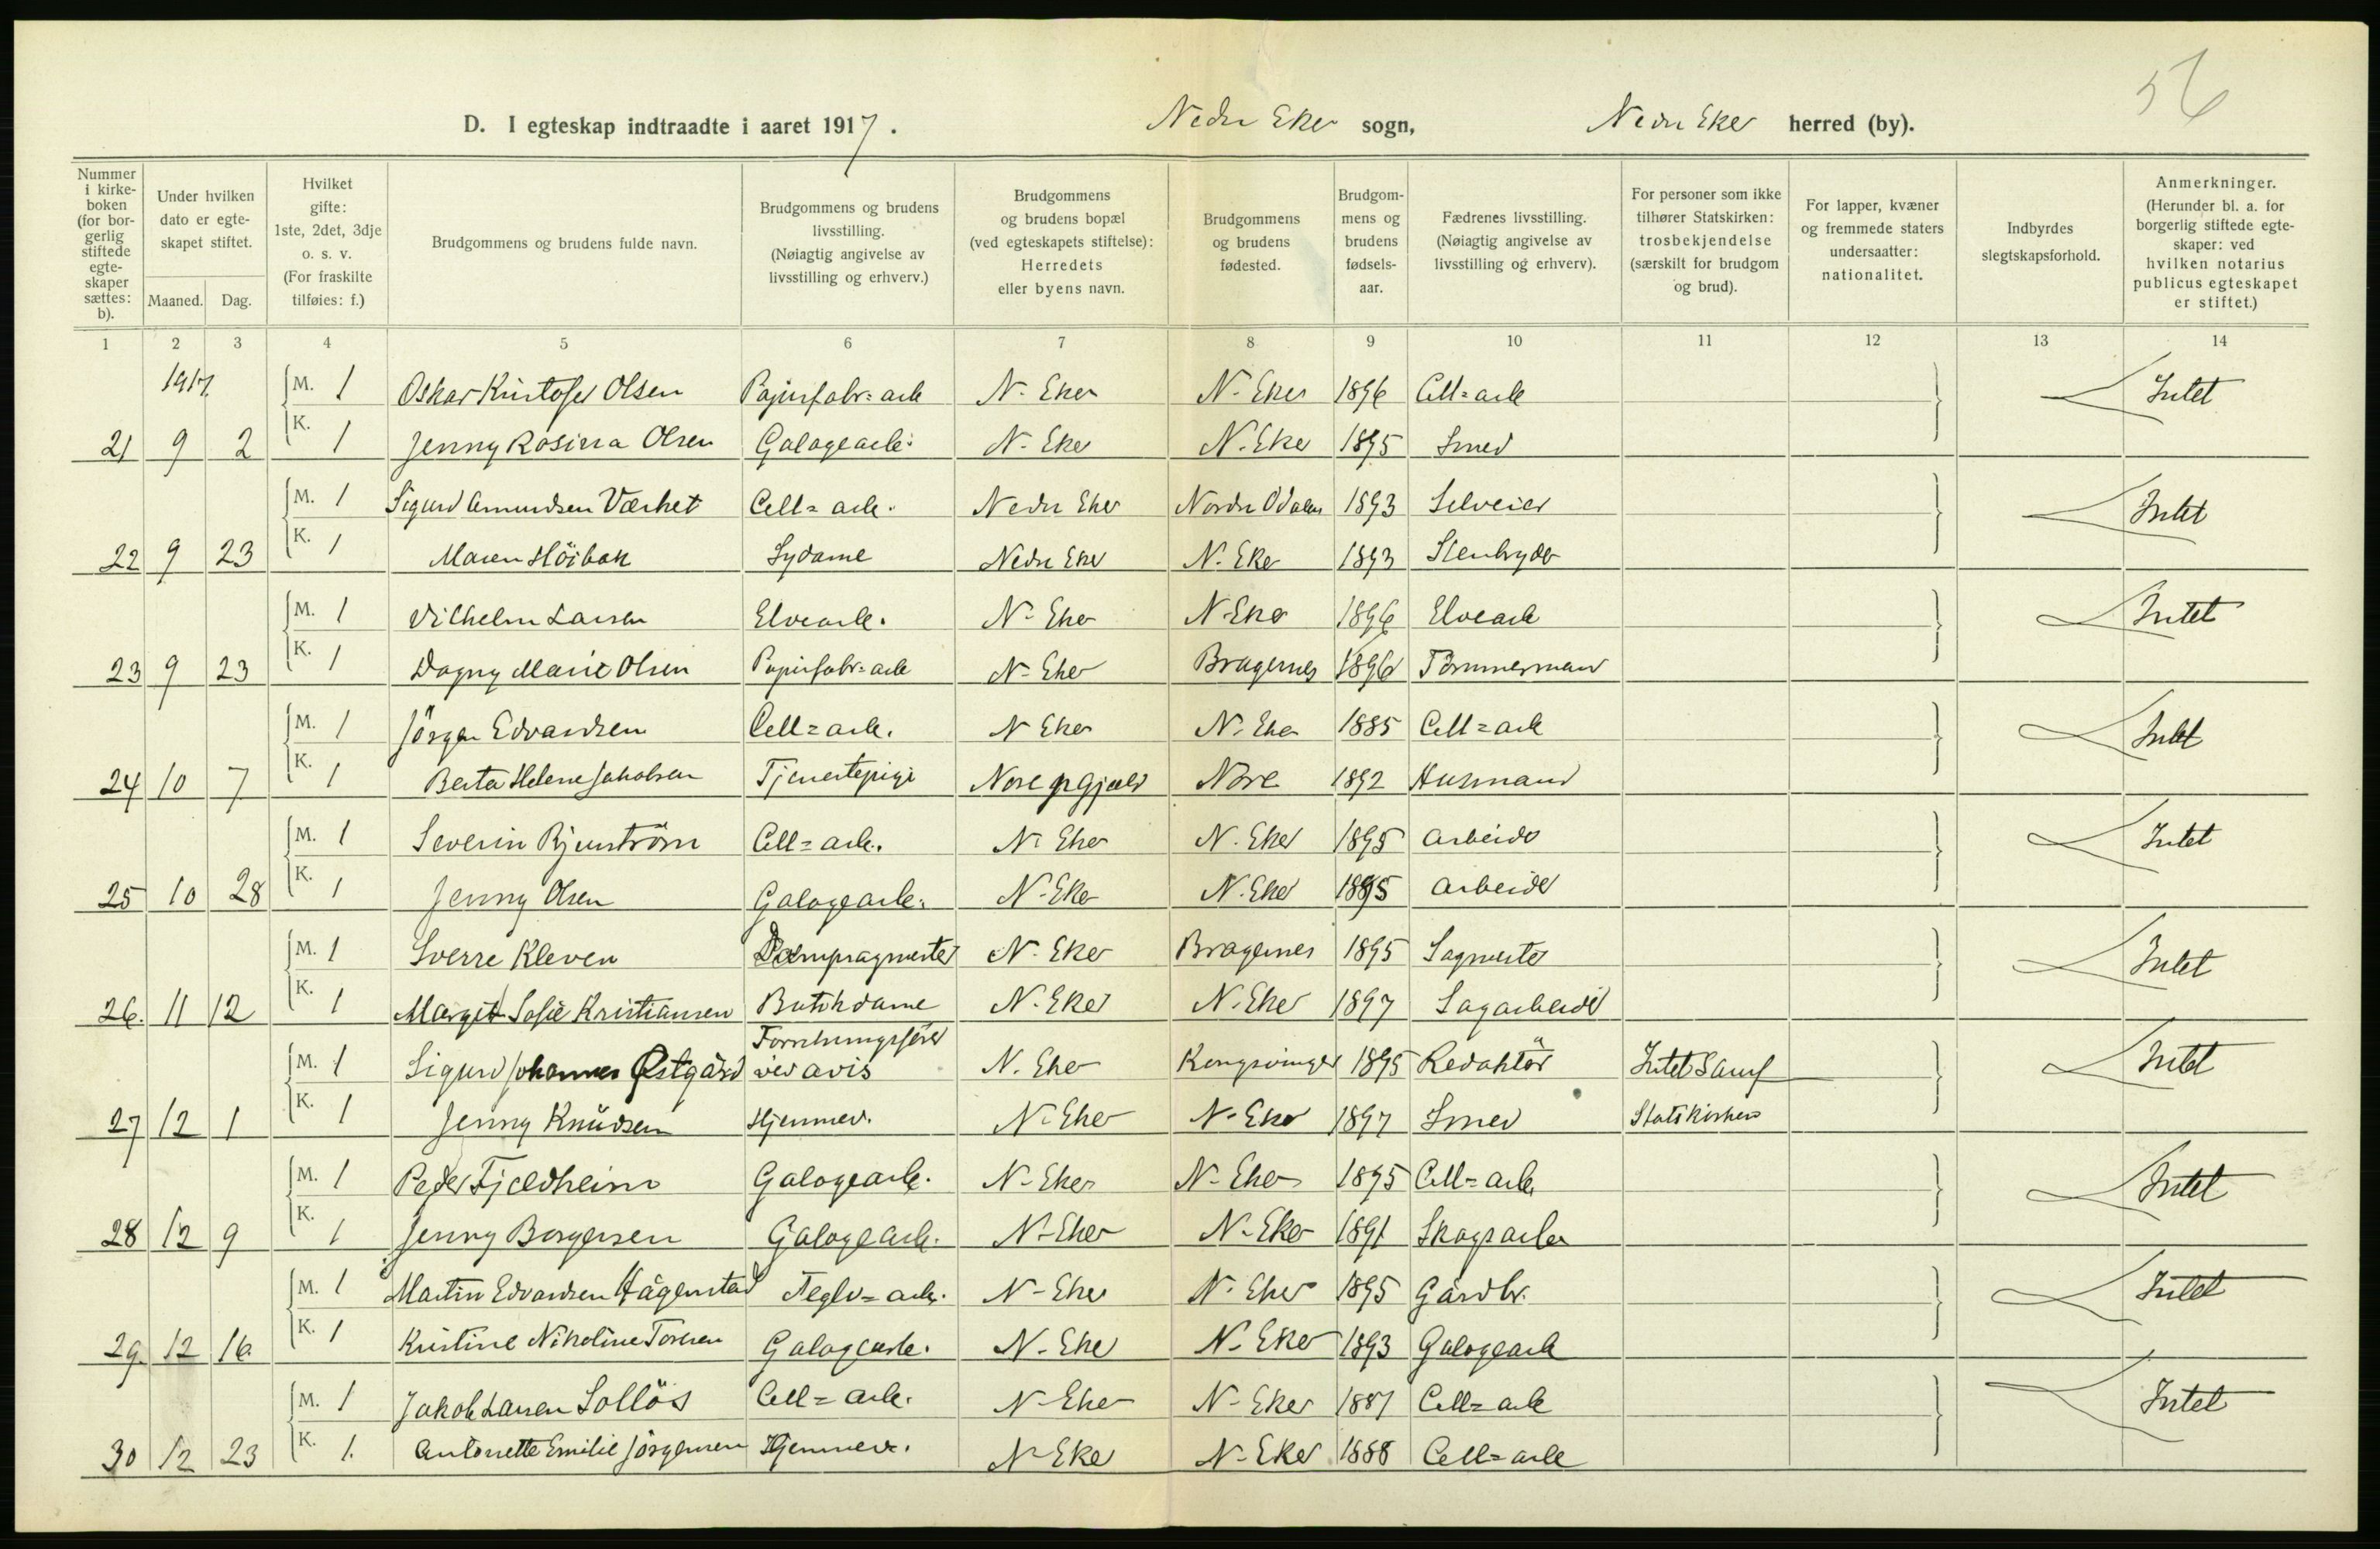 56
D. I egteskap indtraadte i aaret 1917. Nedre Eker sogn, Nedre Eker herred (by).
Nummer i kirke-boken (for bor-gerlig stiftede egte-skaper sættes: b).
Under hvilken dato er egte-skapet stiftet.
Maaned. Dag.
Hvilket gifte: 1ste, 2det, 3dje o. s. v. (For fraskilte tilføies: f.)
Brudgommens og brudens fulde navn.
Brudgommens og brudens livsstilling. (Nøiagtig angivelse av livsstilling og erhverv.)
Brudgommens og brudens bopæl (ved egteskapets stiftelse): Herredets eller byens navn.
Brudgommens og brudens fødested.
Brudgom-mens og brudens fødsels-aar.
Fædrenes livsstilling. (Nøiagtig angivelse av livsstilling og erhverv).
For personer som ikke tilhører Statskirken: trosbekjendelse (særskilt for brudgom og brud).
For lapper, kvæner og fremmede staters undersaatter: nationalitet.
Indbyrdes slegtskapsforhold.
Anmerkninger. (Herunder bl. a. for borgerlig stiftede egte-skaper: ved hvilken notarius publicus egteskapet er stiftet.)
1 2 3 4 5 6 7 8 9 10 11 12 13 14
1917. M. 1 Oskar Kristofer Olsen Papirfabr=arb N- Eker N- Eker 1896 Cell=arb Intet
21 9 2 K. 1 Jenny Rosina Olsen Galogearb. N- Eker N. Eker 1895 Smed
M. 1 Sigurd Amundsen Værhet Cell=arb. Nedre Eker Nordre Odalen 1893 Selveier Intet
22 9 23 K. 1 Maren Höibak Sydame Nedre Eker N. Eker 1893 Stenbryder
M. 1 Vilhelm Larsen Elvearb. N- Eker N-Eker 1896 Elvearb Intet
23 9 23 K. 1 Dagny Marie Olsen Papirfabr=arb N- Eker Bragernes 1896 Tömmermand
M. 1 Jörgen Edvardsen Cell=arb. N Eker N. Eker 1885 Cell=arb Intet
24 10 7 K. 1 Berta Helene Jakobsen Tjenestepige Nore prgjæld Nore 1892 Husmand
M. 1 Severin Bjurström Cell=arb. N. Eker N. Eker 1895 Arbeider Intet
25 10 28 K. 1 Jenny Olsen Galogearb. N-Eker N. Eker 1895 Arbeider
M. 1 Sverre Kleven Dampsagmester N. Eker Bragernes 1895 Sagmester Intet
26. 11 12 K. 1 Margit Sofie Kristiansen Butikdame N. Eker N. Eker 1897 Sagarbeider
M. 1 Sigurd Johannes Østgård Forretningsförer ved avis N. Eker Kongsvinger 1895 Redaktör Intet Samf Intet
27 12 1 K. 1 Jenny Knudsen Hjemmev. N- Eker N- Eker 1897 Smed Statskirken
M. 1 Peder Fjeldheim Galogearb. N- Eker N- Eker 1895 Cell=arb. Intet
28 12 9 K. 1 Jenny Borgersen Galogearb. N- Eker N- Eker 1891 Skogsarb
M. 1 Martin Edvardsen Hågenstad Teglv=arb. N- Eker N. Eker 1895 Gårdbr. Intet
29. 12 16. K. 1 Kristine Nikoline Toresen Galogearb. N- Eker N- Eker 1893 Galogearb
M. 1 Jakob Larsen Sollös Cell=arb. N- Eker N- Eker 1887 Cell=arb Intet
30 12 23 K. 1. Antonette Emilie Jörgensen Hjemmev. N- Eker N- Eker 1888 Cell=arb